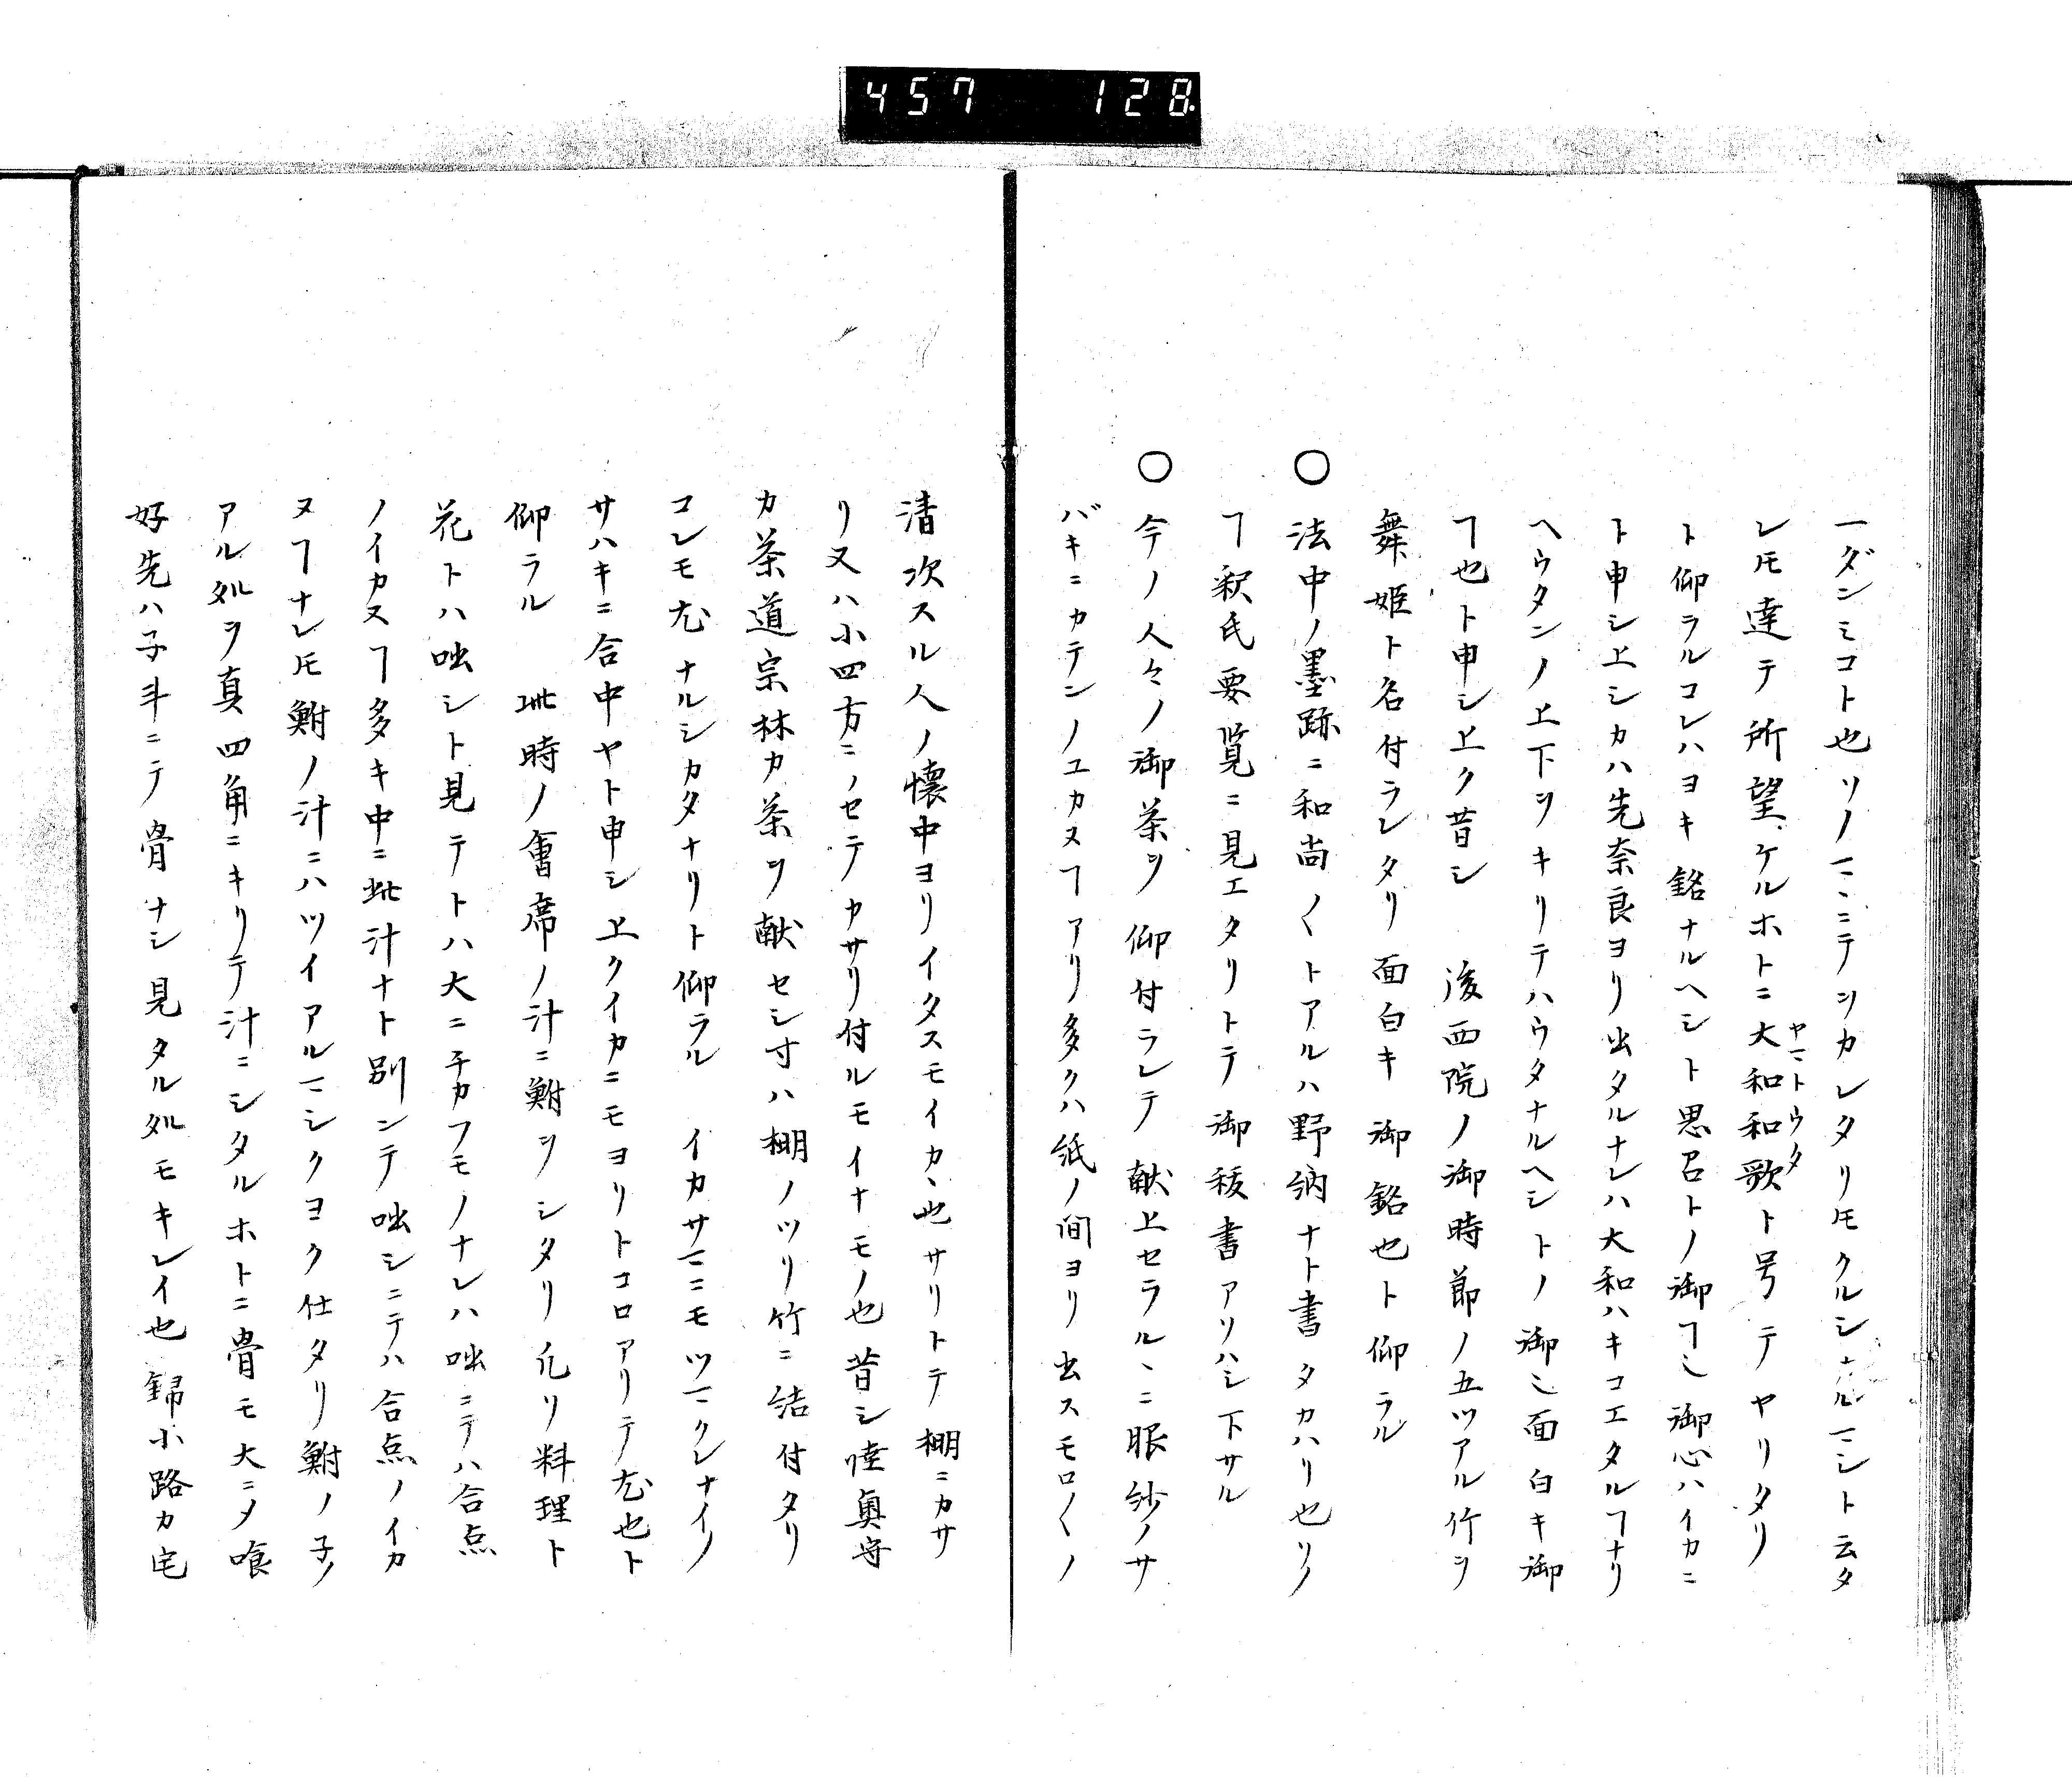 457 128.
一ダンミコト也ソノマヽニテヲカレタリ𪜈クルシカルマシト云タ
レ𪜈達テ所望ケルホトニ大和和歌ト号テヤリタリ
ヤマトウタ
ト仰ラルコレハヨキ銘ナルヘシト思召トノ御ヿ也御心ハイカニ
ト申シ上シカハ先奈良ヨリ出タルナレハ大和ハキコエタルヿナリ
ヘウタンノ上下ヲキリテハウタナルヘシトノ御ヿ面白キ御
ヿ也ト申シ上ク昔シ 後西院ノ御時節ノ五ツアル竹ヲ
舞姫ト名付ラレタリ面白キ御銘也ト仰ラル
○法中ノ墨跡ニ和尚〱トアルハ野衲ナト書タカハリ也ソノ
ヿ釈氏要覧ニ見エタリトテ御抜書アソハシ下サル
○今ノ人々ノ御茶ヲ仰付ラレテ献上セラルヽニ服紗ノサ
バキニカテンノユカヌヿアリ多クハ紙ノ間ヨリ出スモロ〱ノ
清次スル人ノ懐中ヨリイタスモイカヽ也サリトテ棚ニカサ
リ又ハ小四方ニノセテカサリ付ルモイナモノ也昔シ陸奥守
カ茶道宗林カ茶ヲ献セシ寸ハ棚ノツリ竹ニ結付タリ
コレモ尤ナルシカタナリト仰ラル イカサマニモツマクレナイノ
サハキニ合中ヤト申シ上クイカニモヨリトコロアリテ尤也ト
仰ラル 此時ノ會席ノ汁ニ鮒ヲシタリ凡ソ料理ト
花トハ咄シト見テトハ大ニチカフモノナレハ咄ニテハ合点
ノイカヌヿ多キ中ニ此汁ナト別ンテ咄シニテハ合点ノイカ
ヌヿナレ𪜈鮒ノ汁ニハツイアルマシクヨク仕タリ鮒ノ子ノ
アル処ヲ真四角ニキリテ汁ニシタルホトニ骨モ大ニ〆喰
好先ハ子斗ニテ骨ナシ見タル処モキレイ也錦小路カ宅